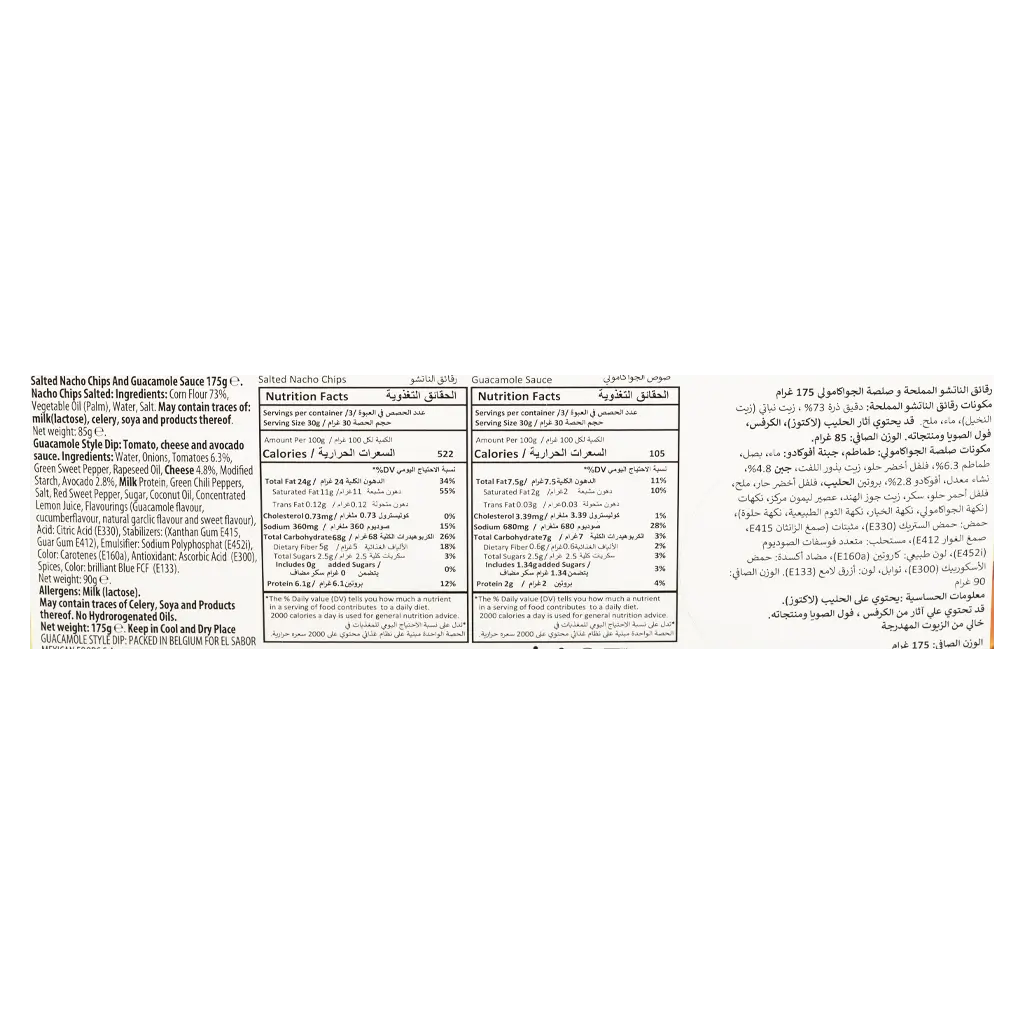 Salted Nacho Chips And Guacamole Sauce 175g ℮.
Nacho Chips Salted: Ingredients: Corn Flour 73%,
Vegetable Oil (Palm), Water, Salt. May contain traces of:
milk(lactose), celery, soya and products thereof.
Net weight: 85g ℮.
Guacamole Style Dip: Tomato, cheese and avocado
sauce. Ingredients: Water, Onions, Tomatoes 6.3%,
Green Sweet Pepper, Rapeseed Oil, Cheese 4.8%, Modified
Starch, Avocado 2.8%, Milk Protein, Green Chili Peppers,
Salt, Red Sweet Pepper, Sugar, Coconut Oil, Concentrated
Lemon Juice, Flavourings (Guacamole flavour,
cucumberflavour, natural garclic flavour and sweet flavour),
Acid: Citric Acid (E330), Stabilizers: (Xanthan Gum E415,
Guar Gum E412), Emulsifier: Sodium Polyphosphat (E452i),
Color: Carotenes (E160a), Antioxidant: Ascorbic Acid (E300),
Spices, Color: brilliant Blue FCF (E133).
Net weight: 90g ℮.
Allergens: Milk (lactose).
May contain traces of Celery, Soya and Products
thereof. No Hydrorogenated Oils.
Net weight: 175g ℮. Keep in Cool and Dry Place
GUACAMOLE STYLE DIP: PACKED IN BELGIUM FOR EL SABOR
Salted Nacho Chips رقائق الناتشو
Nutrition Facts الحقائق التغذوية
Servings per container /3/ عدد الحصص في العبوة
Serving Size 30g / حجم الحصة 30 غرام
Amount Per 100g / الكمية لكل 100 غرام
Calories / السعرات الحرارية 522
%DV* نسبة الاحتياج اليومي
Total Fat 24g / الدهون الكلية 24 غرام 34%
Saturated Fat11g /دهون مشبعة 11غرام 55%
Trans Fat 0.12g /دهون متحولة 0.12غرام
Cholesterol 0.73mg / كوليسترول 0.73 ملغرام 0%
Sodium 360mg / صوديوم 360 ملغرام 15%
Total Carbohydrate68g / الكربوهيدرات الكلية 68غرام 26%
Dietary Fiber 5g /الألياف الغذائية 5غرام 18%
Total Sugars 2.5g / سكريات كلية 2.5 غرام 3%
Includes 0g added Sugars /
يتضمن 0 غرام سكر مضاف 0%
Protein 6.1g / بروتين6.1غرام 12%
*The % Daily value (DV) tells you how much a nutrient
in a serving of food contributes to a daily diet.
2000 calories a day is used for general nutrition advice.
*تدل على نسبة الاحتياج اليومي للمغذيات في
الحصة الواحدة مبنية على نظام غذائي محتوي على 2000 سعره حرارية.
Guacamole Sauce صوص الجواكامولي
Nutrition Facts الحقائق التغذوية
Servings per container /3/ عدد الحصص في العبوة
Serving Size 30g / حجم الحصة 30 غرام
Amount Per 100g / الكمية لكل 100 غرام
Calories / السعرات الحرارية 105
%DV* نسبة الاحتياج اليومي
Total Fat7.5g/ الدهون الكلية7.5غرام 11%
Saturated Fat2g /دهون مشبعة 2غرام 10%
Trans Fat 0.03g /دهون متحولة 0.03غرام
Cholesterol 3.39mg / كوليسترول 3.39 ملغرام 1%
Sodium 680mg / صوديوم 680 ملغرام 28%
Total Carbohydrate7g / الكربوهيدرات الكلية 7غرام 3%
Dietary Fiber 0.6g /الألياف الغذائية0.6غرام 2%
Total Sugars 2.5g/ سكريات كلية 2.5 غرام 3%
Includes 1.34gadded Sugars /
يتضمن1.34 غرام سكر مضاف 3%
Protein 2g / بروتين 2غرام 4%
*The % Daily value (DV) tells you how much a nutrient
in a serving of food contributes to a daily diet.
2000 calories a day is used for general nutrition advice.
*تدل على نسبة الاحتياج اليومي للمغذيات في
الحصة الواحدة مبنية على نظام غذائي محتوي على 2000 سعره حرارية.
رقائق الناتشو المملحة و صلصة الجواكامولي 175 غرام
مكونات رقائق الناتشو المملحة: دقيق ذرة 73% ، زيت نباتي (زيت
النخيل)، ماء، ملح. قد يحتوي آثار الحليب (لاكتوز)، الكرفس،
فول الصويا ومنتجاته. الوزن الصافي: 85 غرام.
مكونات صلصة الجواكامولي: طماطم، جبنة أفوكادو: ماء، بصل،
طماطم 6.3%، فلفل أخضر حلو، زيت بذور اللفت، جبن 4.8%،
نشاء معدل، أفوكادو 2.8%، بروتين الحليب، فلفل أخضر حار، ملح،
فلفل أحمر حلو، سكر، زيت جوز الهند، عصير ليمون مركز، نكهات
(نكهة الجواكامولي، نكهة الخيار، نكهة الثوم الطبيعية، نكهة حلوة)،
حمض: حمض الستريك (E330)، مثبتات (صمغ الزانثان E415،
صمغ الغوار E412)، مستحلب: متعدد فوسفات الصوديوم
(E452i)، لون طبيعي: كاروتين (E160a)، مضاد أكسدة: حمض
الأسكوربيك (E300)، توابل، لون: أزرق لامع (E133). الوزن الصافي:
90 غرام
معلومات الحساسية :يحتوي على الحليب (لاكتوز).
قد تحتوي على آثار من الكرفس ، فول الصويا ومنتجاته.
خالي من الزيوت المهدرجة
الوزن الصافي: 175 غرام